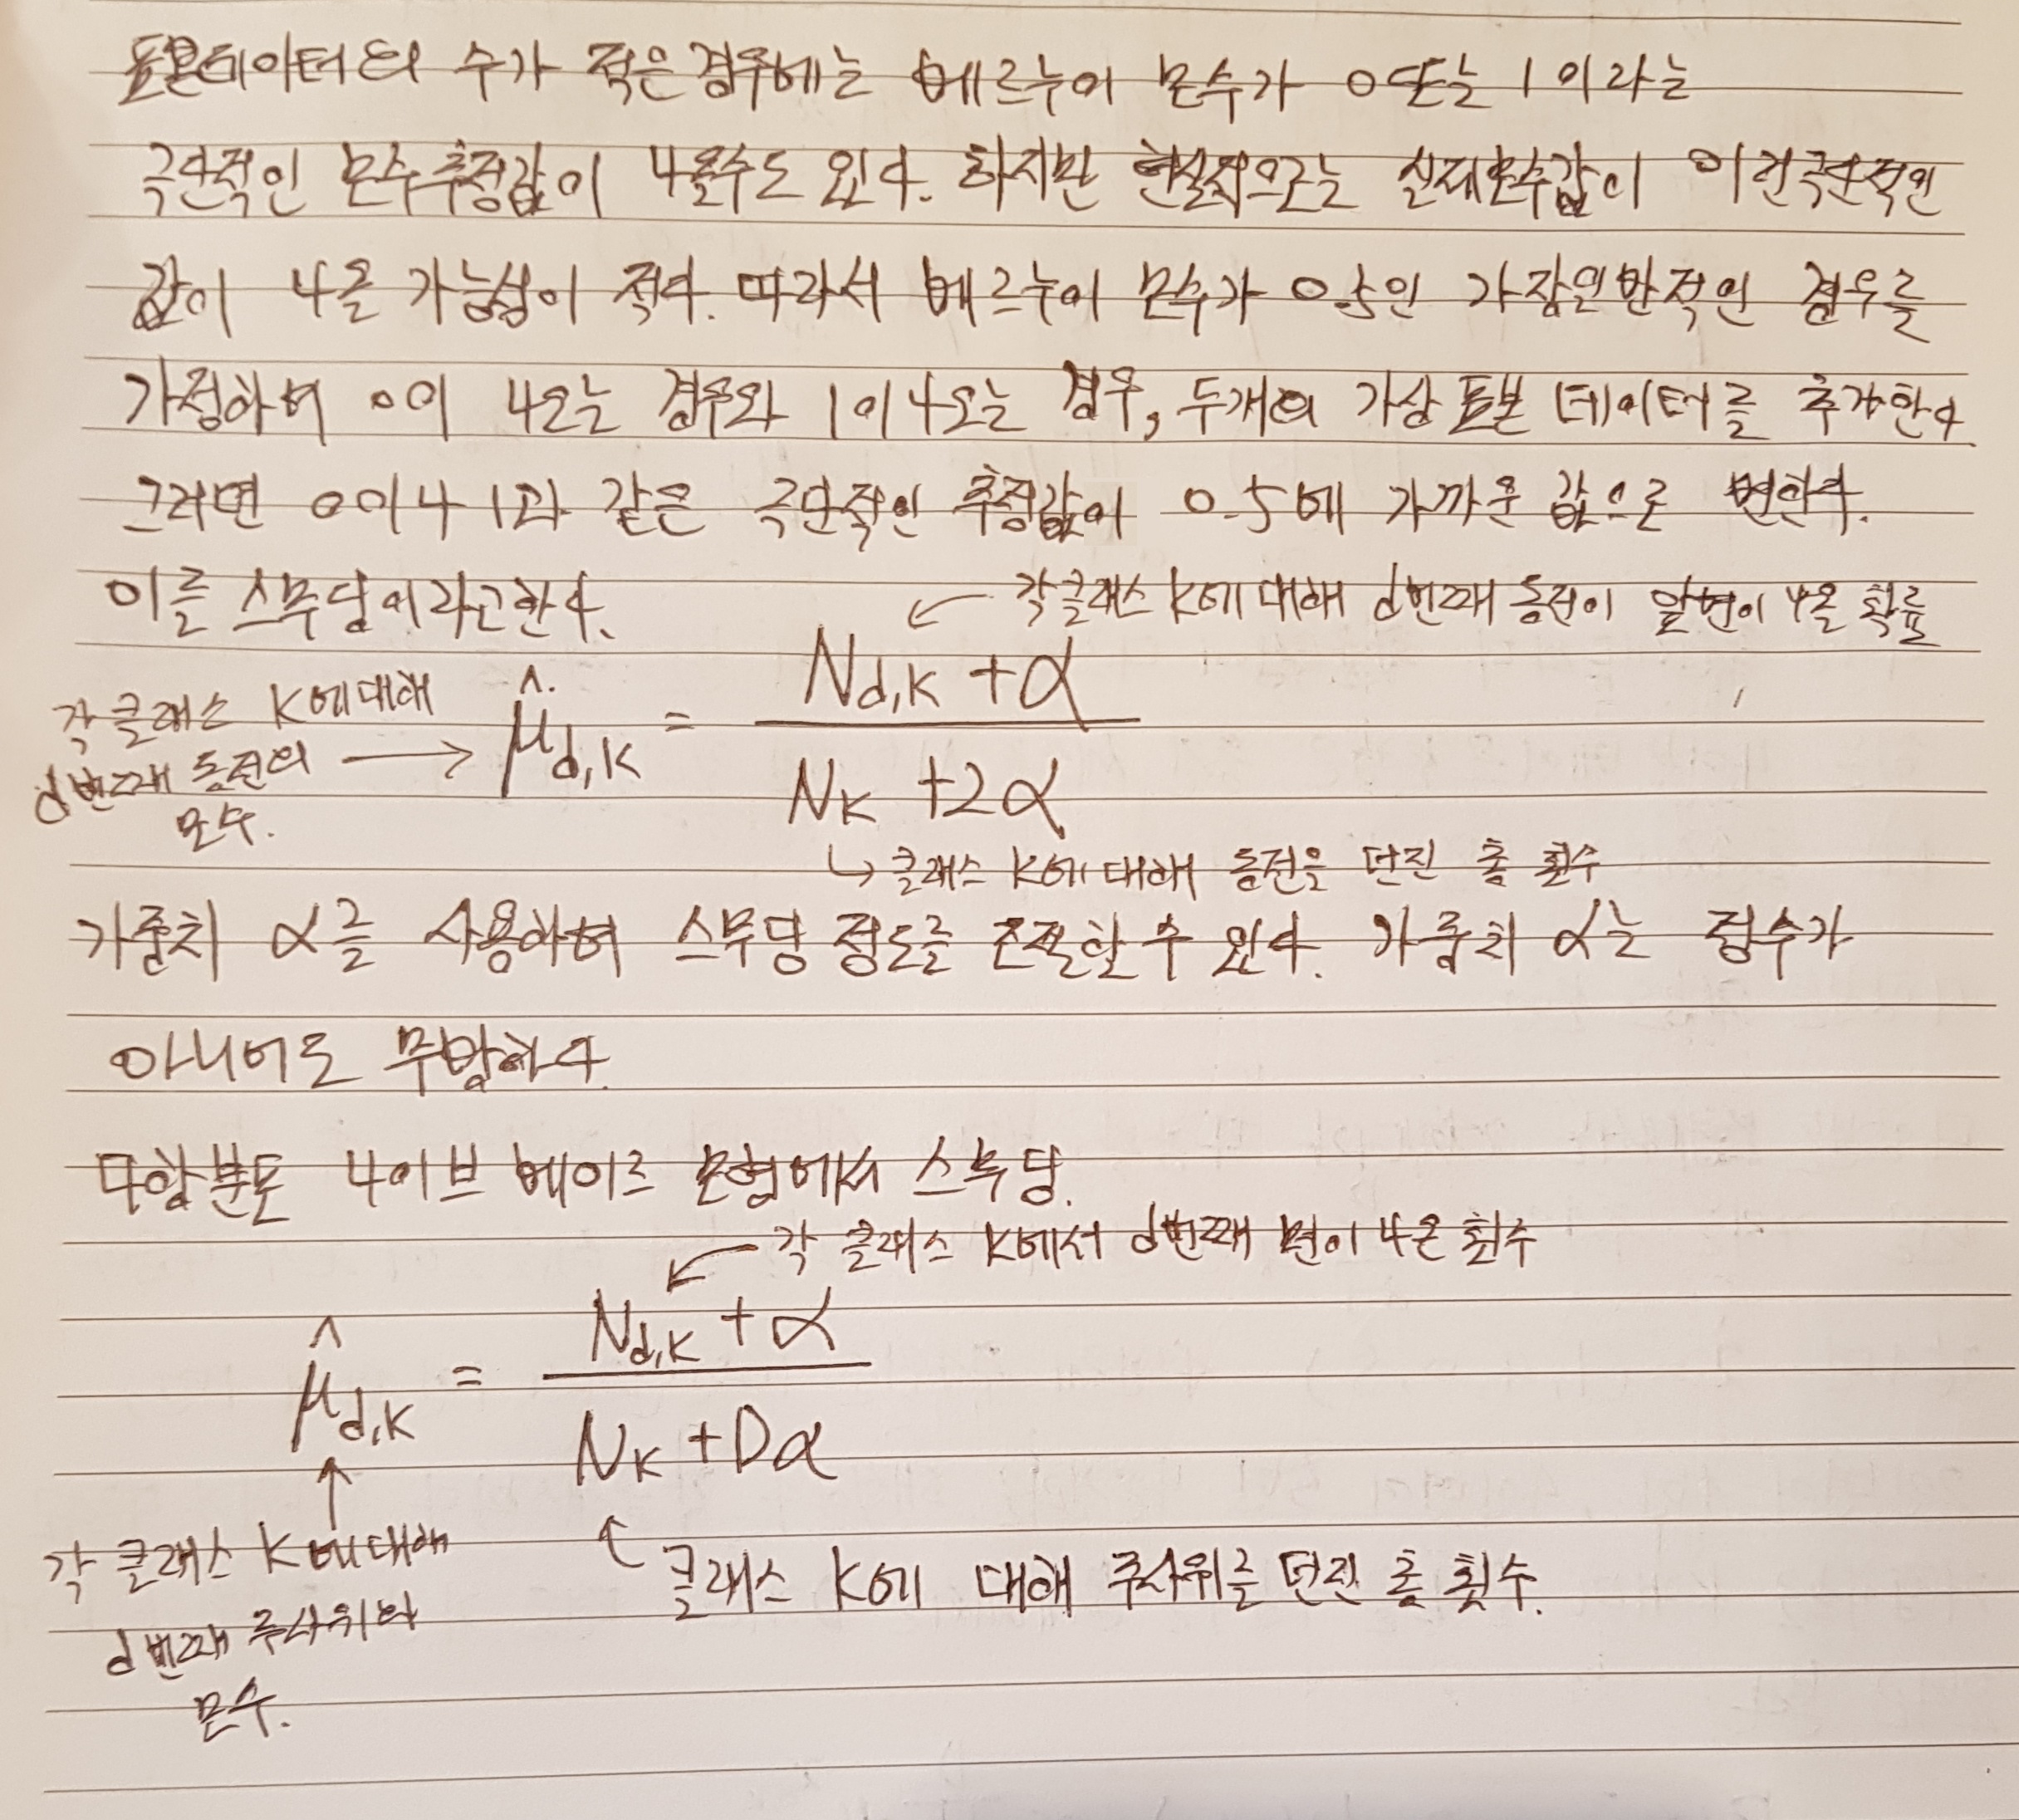 표본데이터의 수가 적은경우에는 베르누이 모수가 0또는 1이라는
극단적인 모수추정값이 나올수도 있다. 하지만 현실적으로는 실제모수값이 이런극단적인
값이 나올 가능성이 적다. 따라서 베르누이 모수가 0.5인 가장일반적인 경우를
가정하여 0이 나오는 경우와 1이나오는 경우, 두개의 가상 표본 데이터를 추가한다.
그러면 0이나 1과 같은 극단적인 추정값이 0.5에 가까운 값으로 변한다.
이를 스무딩이라고한다.
각클래스 K에대해 d번째 동전이 앞면이 나올 확률
각 클래스 K에대해
d번째 동전의
모수.
μ̂d,K = (Nd,K + α) / (NK + 2α)
클래스 K에 대해 동전을 던진 총 횟수
가중치 α를 사용하여 스무딩 정도를 조절할 수 있다. 가중치 α는 정수가
아니어도 무방하다.
다항분포 나이브 베이즈 모형에서 스무딩.
각 클래스 K에서 d번째 면이 나온 횟수
μ̂d,K = (Nd,K + α) / (NK + Dα)
각 클래스 K에대해
d번째 주사위의
모수.
클래스 K에 대해 주사위를 던진 총 횟수.